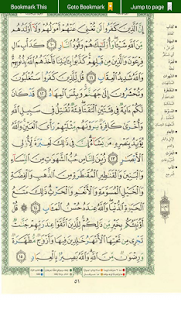 Bookmark This Goto Bookmark Jump to page
إِنَّ الَّذِينَ كَفَرُوا لَن تُغْنِيَ عَنْهُمْ أَمْوَالُهُمْ وَلَا أَوْلَادُهُم
مِّنَ اللَّهِ شَيْئًا وَأُولَٰئِكَ هُمْ وَقُودُ النَّارِ ١٠ كَدَأْبِ آلِ
فِرْعَوْنَ وَالَّذِينَ مِن قَبْلِهِمْ كَذَّبُوا بِآيَاتِنَا فَأَخَذَهُمُ اللَّهُ
بِذُنُوبِهِمْ وَاللَّهُ شَدِيدُ الْعِقَابِ ١١ قُل لِّلَّذِينَ كَفَرُوا
سَتُغْلَبُونَ وَتُحْشَرُونَ إِلَىٰ جَهَنَّمَ وَبِئْسَ الْمِهَادُ ١٢ قَدْ كَانَ
لَكُمْ آيَةٌ فِي فِئَتَيْنِ الْتَقَتَا فِئَةٌ تُقَاتِلُ فِي سَبِيلِ
اللَّهِ وَأُخْرَىٰ كَافِرَةٌ يَرَوْنَهُم مِّثْلَيْهِمْ رَأْيَ الْعَيْنِ وَاللَّهُ
يُؤَيِّدُ بِنَصْرِهِ مَن يَشَاءُ إِنَّ فِي ذَٰلِكَ لَعِبْرَةً لِّأُولِي
الْأَبْصَارِ ١٣ زُيِّنَ لِلنَّاسِ حُبُّ الشَّهَوَاتِ مِنَ النِّسَاءِ
وَالْبَنِينَ وَالْقَنَاطِيرِ الْمُقَنطَرَةِ مِنَ الذَّهَبِ وَالْفِضَّةِ
وَالْخَيْلِ الْمُسَوَّمَةِ وَالْأَنْعَامِ وَالْحَرْثِ ذَٰلِكَ مَتَاعُ
الْحَيَاةِ الدُّنْيَا وَاللَّهُ عِندَهُ حُسْنُ الْمَآبِ ١٤ قُلْ
أَؤُنَبِّئُكُم بِخَيْرٍ مِّن ذَٰلِكُمْ لِلَّذِينَ اتَّقَوْا عِندَ رَبِّهِمْ جَنَّاتٌ
تَجْرِي مِن تَحْتِهَا الْأَنْهَارُ خَالِدِينَ فِيهَا وَأَزْوَاجٌ مُّطَهَّرَةٌ
وَرِضْوَانٌ مِّنَ اللَّهِ وَاللَّهُ بَصِيرٌ بِالْعِبَادِ ١٥
٥١